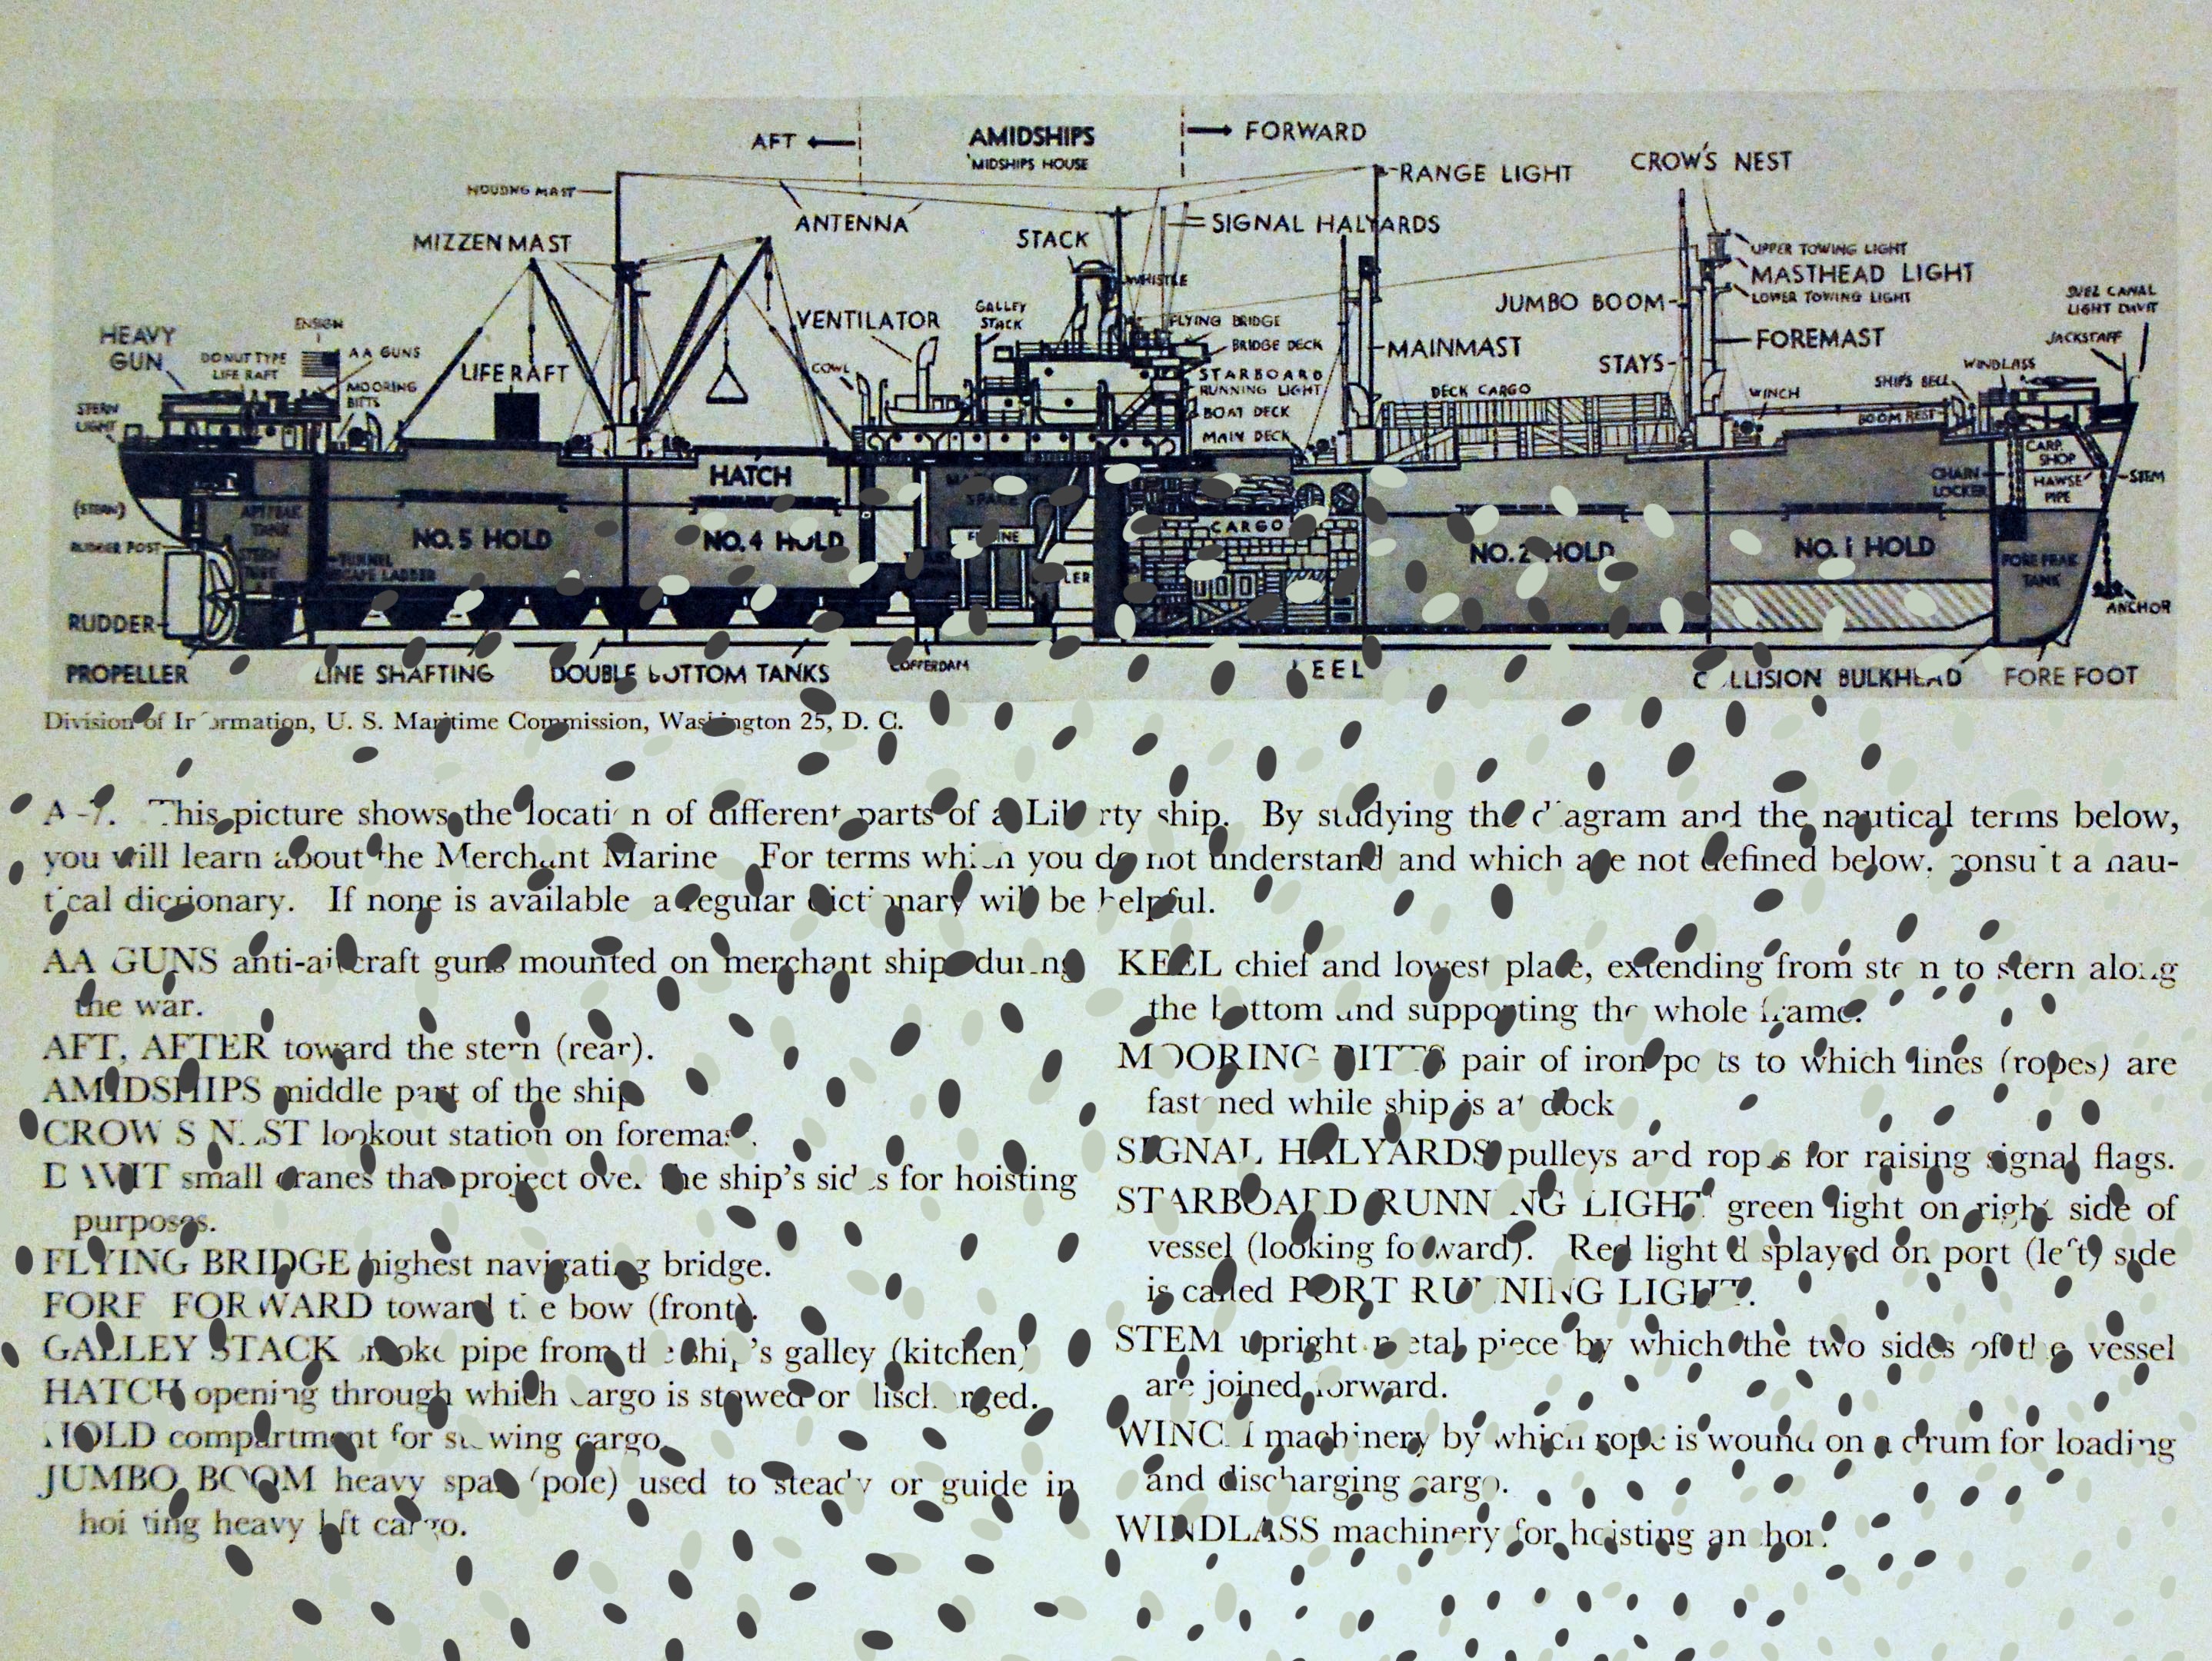 AFT
AMIDSHIPS
'MIDSHIPS HOUSE
FORWARD
HOUDNG MAST
RANGE LIGHT
CROW'S NEST
ANTENNA
SIGNAL HALYARDS
MIZZEN MAST
STACK
UPPER TOWING LIGHT
WHISTLE
MASTHEAD LIGHT
LOWER TOWING LIGHT
SUEZ CANAL
LIGHT DAVIT
JUMBO BOOM
GALLEY
STACK
VENTILATOR
FLYING BRIDGE
ENSIGN
HEAVY
GUN
BRIDGE DECK
MAINMAST
FOREMAST
JACKSTAFF
DONUT TYPE
LIFE RAFT
AA GUNS
LIFE RAFT
COWL
STARBOARD
RUNNING LIGHT
STAYS
WINDLASS
MOORING
BITTS
DECK CARGO
WINCH
SHIP'S BELL
STERN
LIGHT
BOAT DECK
BOOM REST
MAIN DECK
CARP.
SHOP
HATCH
SPACE
CHAIN
LOCKER
HAWSE
PIPE
STEM
(STERN)
AFT PEAK
TANK
CARGO
NO. 5 HOLD
NO. 4 HOLD
NO. 2 HOLD
NO. 1 HOLD
RUDDER POST
STERN
TUBE
TUNNEL
ESCAPE LADDER
FORE PEAK
TANK
RUDDER
ANCHOR
PROPELLER
LINE SHAFTING
DOUBLE BOTTOM TANKS
COFFERDAM
KEEL
COLLISION BULKHEAD
FORE FOOT
Division of Information, U. S. Maritime Commission, Washington 25, D. C.
A-7. This picture shows the location of different parts of a Liberty ship. By studying the diagram and the nautical terms below,
you will learn about the Merchant Marine. For terms which you do not understand and which are not defined below, consult a nau-
tical dictionary. If none is available a regular dictionary will be helpful.
AA GUNS anti-aircraft guns mounted on merchant ships during
the war.
AFT, AFTER toward the stern (rear).
AMIDSHIPS middle part of the ship.
CROW'S NEST lookout station on foremast.
DAVIT small cranes that project over the ship's sides for hoisting
purposes.
FLYING BRIDGE highest navigating bridge.
FORE FORWARD toward the bow (front).
GALLEY STACK smoke pipe from the ship's galley (kitchen)
HATCH opening through which cargo is stowed or discharged.
HOLD compartment for stowing cargo.
JUMBO BOOM heavy spar (pole) used to steady or guide in
hoisting heavy lift cargo.
KEEL chief and lowest place, extending from stern to stern along
the bottom and supporting the whole frame.
MOORING BITTS pair of iron posts to which lines (ropes) are
fastened while ship is at dock
SIGNAL HALYARDS pulleys and ropes for raising signal flags.
STARBOARD RUNNING LIGHT green light on right side of
vessel (looking forward). Red light displayed on port (left) side
is called PORT RUNNING LIGHT.
STEM upright metal piece by which the two sides of the vessel
are joined forward.
WINCH machinery by which rope is wound on a drum for loading
and discharging cargo.
WINDLASS machinery for hoisting anchor.